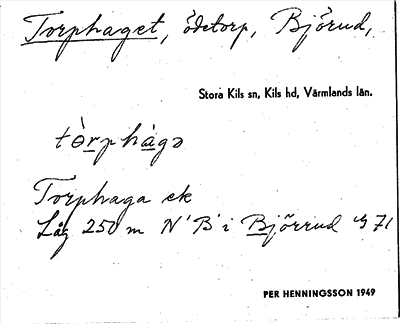 Torphaget, ödetorp, Björud,
Stora Kils sn, Kils hd, Värmlands län.
tɵ̀rphágə
Torphaga ek
Låg 250 m N' B' i Björrud
PER HENNINGSSON 1949